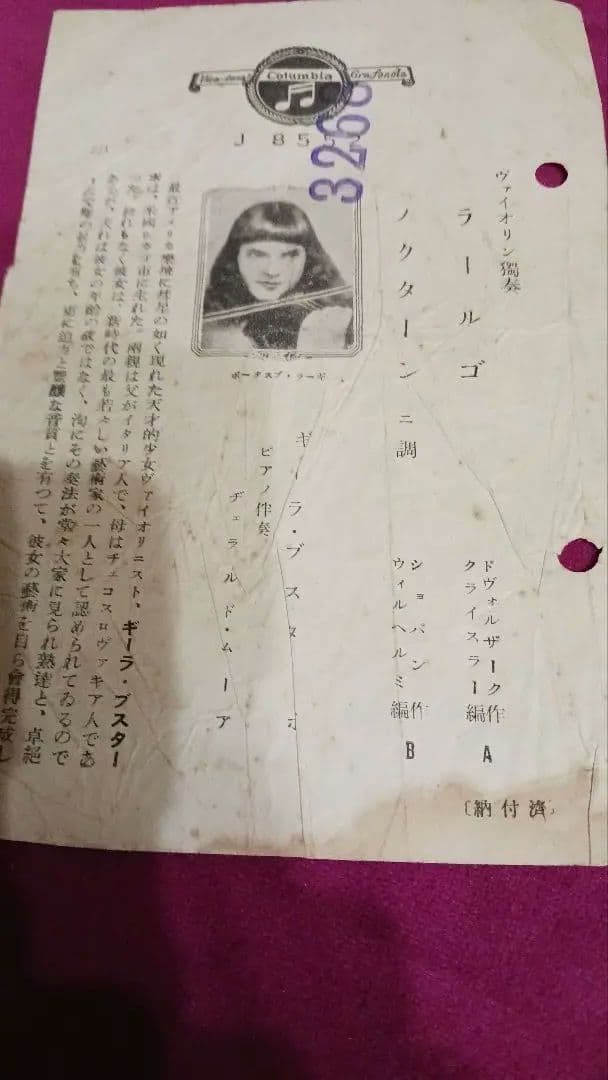 Viva-tonal Columbia Grafonola
J 855
3266
ヴァイオリン獨奏
ラールゴ
ドヴォルザーク作
クライスラー編
A
ノクターン ニ調
ショパン作
ウィルヘルミ編
B
ギーラ・ブスタボ
ピアノ伴奏
ヂェラルド・ムーア
〔納付濟〕
ボータスブ・ラーギ
最近アメリカ樂壇に彗星の如く現れた天才的少女ヴァイオリニスト、ギーラ・ブスター
ボは、米國シカゴ市に生れた。兩親は父がイタリア人で、母はチェコスロヴァキア人であ
つた。紛れもなく彼女は、新時代の最も若々しい藝術家の一人として認められてゐるので
あるが、夫れは彼女の年齡の故ではなく、洵にその奏法が堂々大家に見られ熟達と、卓絕
を有ち、更に迫力と豐醸な音質とを有つて、彼女の藝術を自ら會得完成し